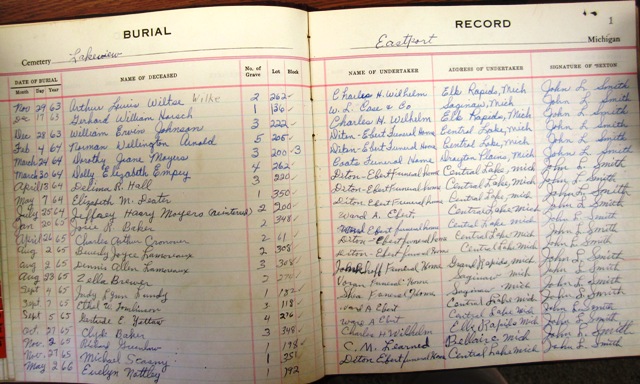 BURIAL
Cemetery Lakeview
DATE OF BURIAL
Month Day Year
NAME OF DECEASED
No. of Grave
Lot
Block
Nov 29 63 Arthur Louis Wiltse Wilke 2 262
Dec 17 63 Gerhard William Hersch 1 136
Dec 28 63 William Johnson 3 222
Feb 4 64 Norman Wellington Arnold 5 205
March 24 64 Dorothy Jeane Moyers 3 200 -3
March 30 64 Dolly Elizabeth Empey 4 262
April 8 64 Delima R. Hall 3 220
May 7 64 Elizabeth M. Deater 1 350
July 25 64 Jeffrey Haary Moyers 2 200
Jan 20 65 Josie R. Baker 2 348
April 26 65 Charles Arthur Cronover 2 61
Aug 2 65 Beverly Joyce Lamoreaux 2 308
Aug 2 65 Dennis Allen Lamoreaux 3 308
Aug 23 65 Zella Brewer 2
Sept 4 65 Lynn 1 182
Sept 7 65 Ethel Tomlinson 3 118
Sept 5 65 Gertrude E. 4 216
Oct. 27 65 Clyde Baker 3 348
Nov. 2 65 Richard 1 198
Nov. 27 65 Michael 1 351
May 2 66 Evelyn Nottley 1 192
RECORD
1
Eastport Michigan
NAME OF UNDERTAKER
ADDRESS OF UNDERTAKER
SIGNATURE OF SEXTON
Charles H. Wilhelm Elk Rapids, Mich John L. Smith
W. L. Case & Co Saginaw, Mich John L Smith
Charles H. Wilhelm Elk Rapids, Mich John L Smith
Diton-Ebert Funeral Home Central Lake, Mich John L Smith
Diton-Ebert Funeral Home Central Lake, Mich John L Smith
Coats Funeral Home Drayton Plains, Mich John L Smith
Diton-Ebert Funeral Home Central Lake, Mich John L. Smith
Diton-Ebert Funeral Home Central Lake, Mich John L. Smith
Diton-Ebert Funeral Home Central Lake, Mich John L. Smith
Ward A. Ebert Central Lake Mich John L. Smith
Ebert funeral home Central Lake Mich John L Smith
Diton-Ebert funeral home Central Lake Mich John L. Smith
Diton-Ebert funeral home Central Lake Mich John L Smith
Funeral Home Grand Rapids Mich John L. Smith
Funeral Home Saginaw Mich John L. Smith
Funeral Home Saginaw Mich John L. Smith
Ward A Ebert Central Lake Mich John L. Smith
Ward A Ebert Central Lake Mich John L. Smith
Charles H Wilhelm Elk Rapids Mich John L. Smith
C. M. Learned Bellaire Mich John L. Smith
Diton Ebert funeral home Central Lake Mich John L. Smith